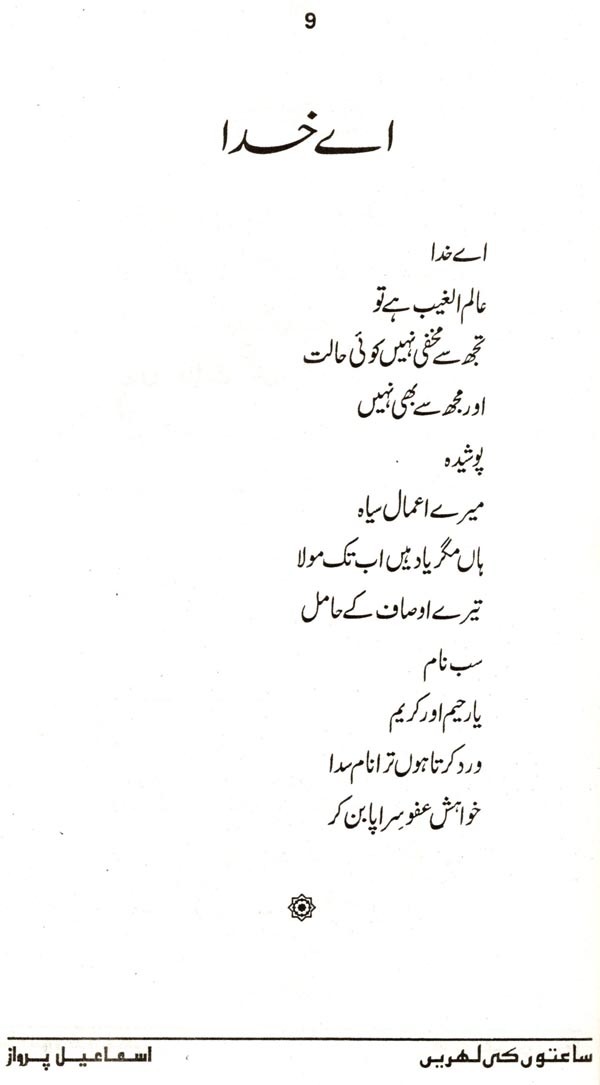 9
اے خدا
اے خدا
عالم الغیب ہے تو
تجھ سے مخفی نہیں کوئی حالت
اور مجھ سے بھی نہیں
پوشیدہ
میرے اعمال سیاہ
ہاں مگر یاد ہیں اب تک مولا
تیرے اوصاف کے حامل
سب نام
یا رحیم اور کریم
ورد کرتا ہوں ترا نام سدا
خواہش عفو سِراپا بن کر
ساعتوں کی لہریں
اسماعیل پرواز